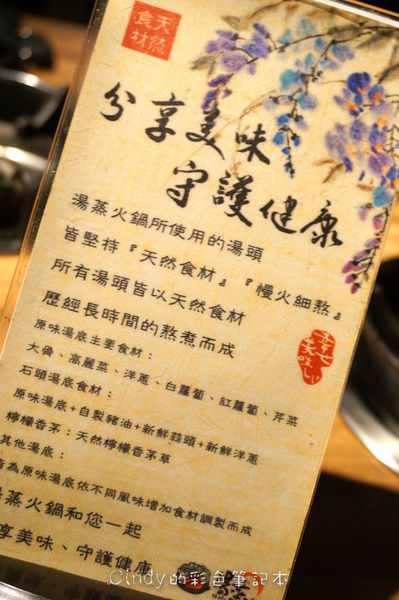 天然
食材
分享美味
守護健康
湯蒸火鍋所使用的湯頭
皆堅持『天然食材』『慢火細熬』
所有湯頭皆以天然食材
歷經長時間的熬煮而成
原味湯底主要食材：
大骨、高麗菜、洋蔥、白蘿蔔、紅蘿蔔、芹菜
石頭湯底食材：
原味湯底+自製豬油+新鮮蒜頭+新鮮洋蔥
檸檬香茅：天然檸檬香茅草
其他湯底：
皆為原味湯底依不同風味增加食材調製而成
湯蒸火鍋和您一起
享美味、守護健康
Cindy的彩色筆記本